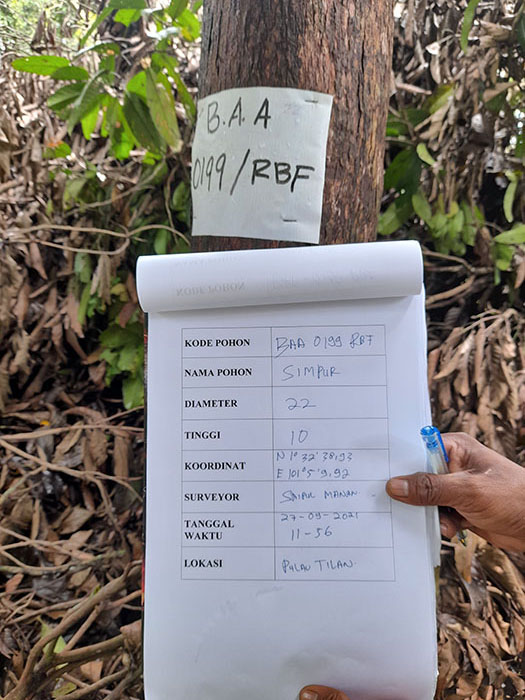 B.A.A
0199/RBF
KODE POHON BAA 0199 RBF
NAMA POHON SIMPUR
DIAMETER 22
TINGGI 10
KOORDINAT N 1° 32' 38,93
E 101° 5' 9,92
SURVEYOR MANAN
TANGGAL 27-09-2021
WAKTU 11-56
LOKASI PULAU TILAN